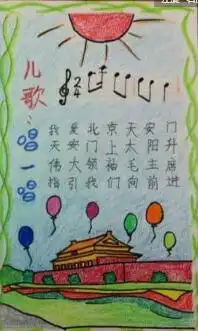 儿歌：唱一唱
2/4
我爱北京天安门
天安门上太阳升
伟大领袖毛主席
指引我们向前进